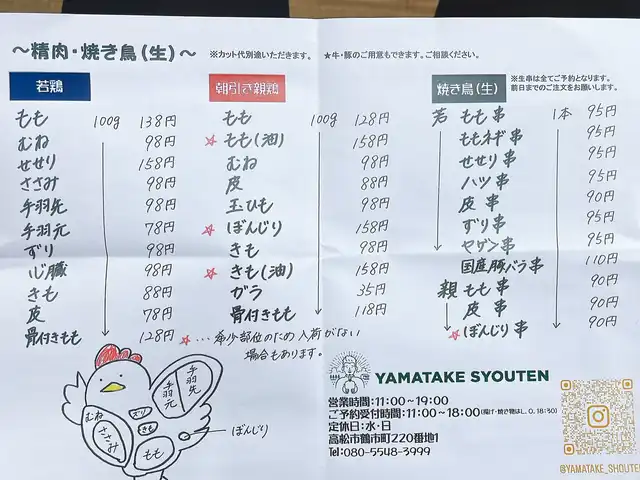 ～精肉・焼き鳥(生)～
※カット代別途いただきます。
★牛・豚のご用意もできます。ご相談ください。
若鶏
もも 100g 138円
むね 98円
せせり 158円
ささみ 98円
手羽先 98円
手羽元 78円
ずり 98円
心臓 98円
きも 88円
皮 78円
骨付きもも 128円
朝引き親鶏
もも 100g 128円
☆もも(油) 158円
むね 98円
皮 88円
玉ひも 98円
☆ぼんじり 158円
きも 98円
☆きも(油) 158円
ガラ 35円
骨付きもも 118円
☆…希少部位のため入荷がない
場合もあります。
焼き鳥(生)
※生串は全てご予約となります。
前日までのご注文をお願いします。
若 もも串 1本 95円
ももネギ串 95円
せせり串 95円
ハツ串 95円
皮串 90円
ずり串 95円
ヤゲン串 95円
国産豚バラ串 110円
親 もも串 90円
皮串 90円
☆ぼんじり串 90円
手羽先
手羽元
むね
ずり
きも
ささみ
もも
ぼんじり
YAMATAKE SYOUTEN
営業時間:11:00～19:00
ご予約受付時間:11:00～18:00(揚げ・焼き物はL.O.18:30)
定休日:水・日
高松市鶴市町220番地1
Tel:080-5548-3999
@YAMATAKE_SHOUTEN